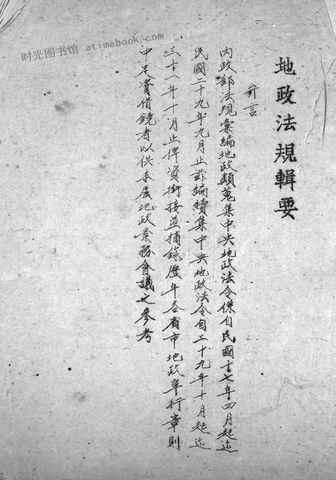 时光图书馆 atimebook.com
地政法規輯要
弁言
內政部法規彙編地政類蒐集中央地政法令係自民國十七年四月起迄
民國二十九年九月止茲編續集中央地政法令自二十九年十月起迄
三十一年十月止俾資銜接並補錄歷年各省市地政單行章則
中足資借鏡者以供本屆地政業務會議之參考